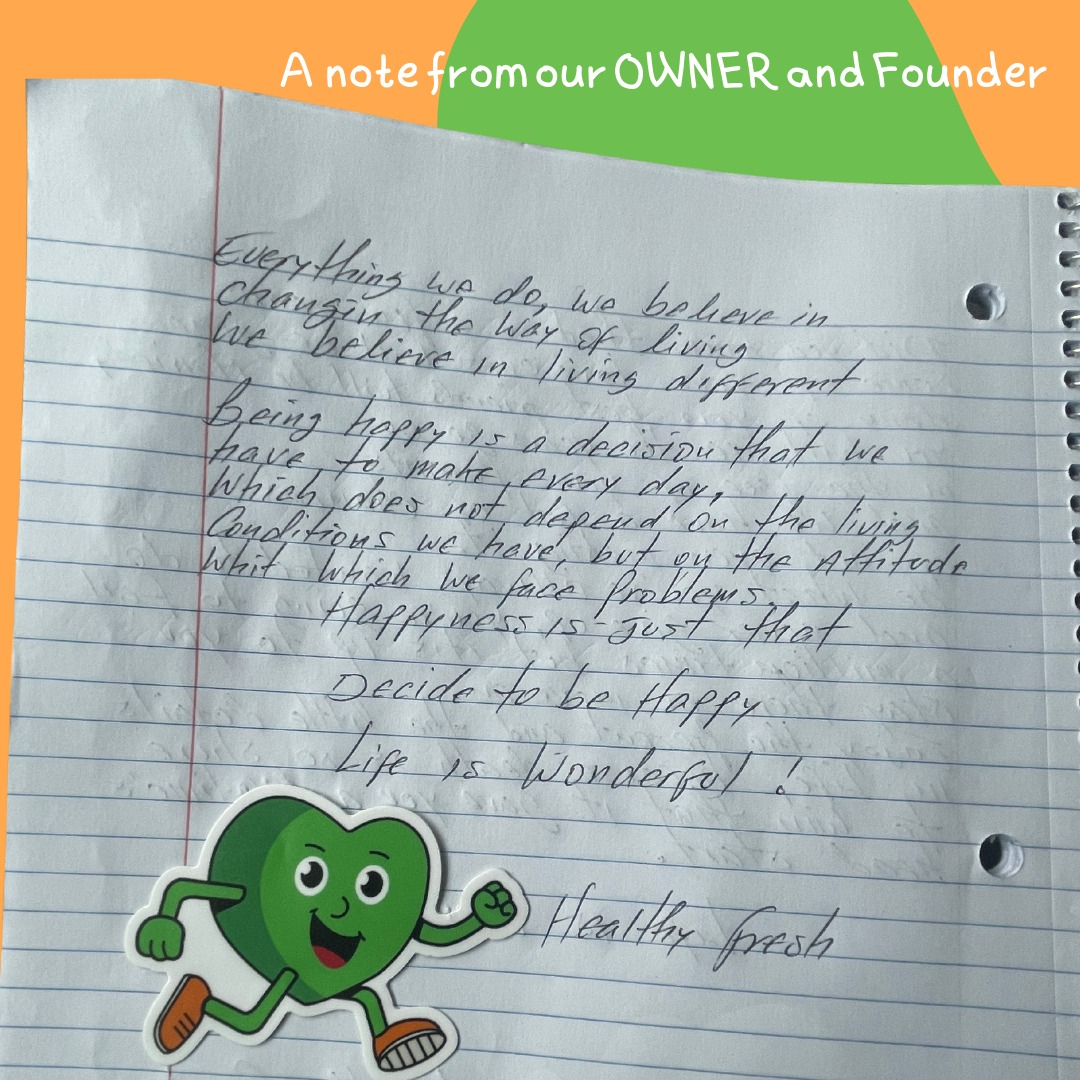 A note from our OWNER and Founder
Everything we do, we believe in
changin the way of living
we believe in living different
Being happy is a decision that we
have to make every day,
which does not depend on the living
Conditions we have, but on the Attitude
whit which we face Problems.
Happyness is just that
Decide to be Happy
Life is Wonderful !
Healthy fresh